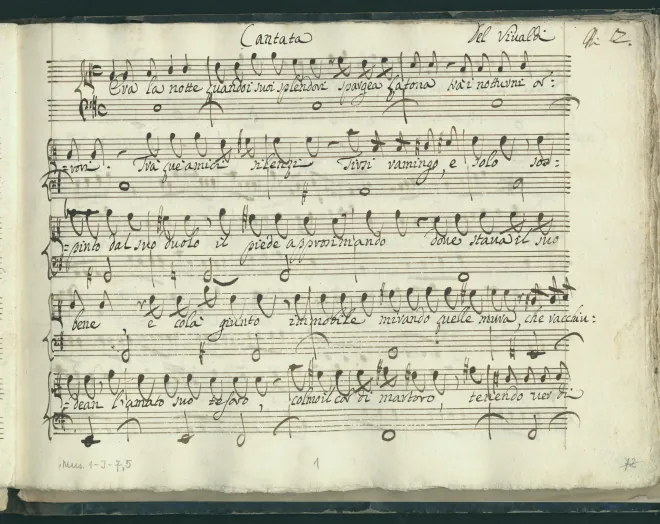 Cantata Del Viualdi 12.
Era la notte quando i suoi splendori spargea Latona tra i notturni or:
=rori. Tra que amici silenzi Tirsi ramingo, e solo sos=
=pinto dal suo duolo il piede approssimando doue staua il suo
bene, e colà giunto immobile mirando quelle mura, che racchiu:
=dean l'amato suo tesoro, colmo il cor di martoro, tenendo uer di
Mus. 1-J-7,5 1 72